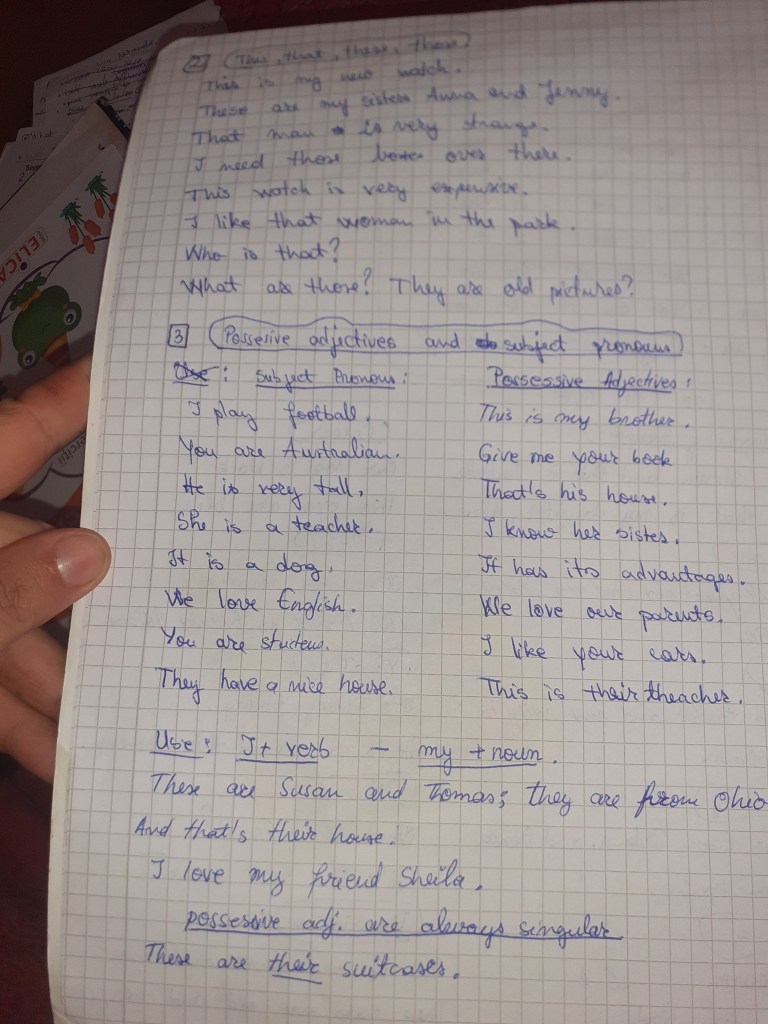 2 This, that, these, those
This is my new watch.
These are my sisters Anna and Jenny.
That man is very strange.
I need those boxes over there.
This watch is very expensive.
I like that woman in the park.
Who is that?
What are those? They are old pictures?
3 Possesive adjectives and subject pronouns
Use: Subject Pronous: Possessive Adjectives:
I play football. This is my brother.
You are Australian. Give me your book
He is very tall. That's his house.
She is a teacher. I know her sister.
It is a dog. It has its advantages.
We love English. We love our parents.
You are studens. I like your cars.
They have a nice house. This is their theacher.
Use: I + verb — my + noun.
These are Susan and Thomas; they are from Ohio
And that's their house.
I love my friend Sheila.
possessive adj. are always singular
These are their suitcases.
ELICA